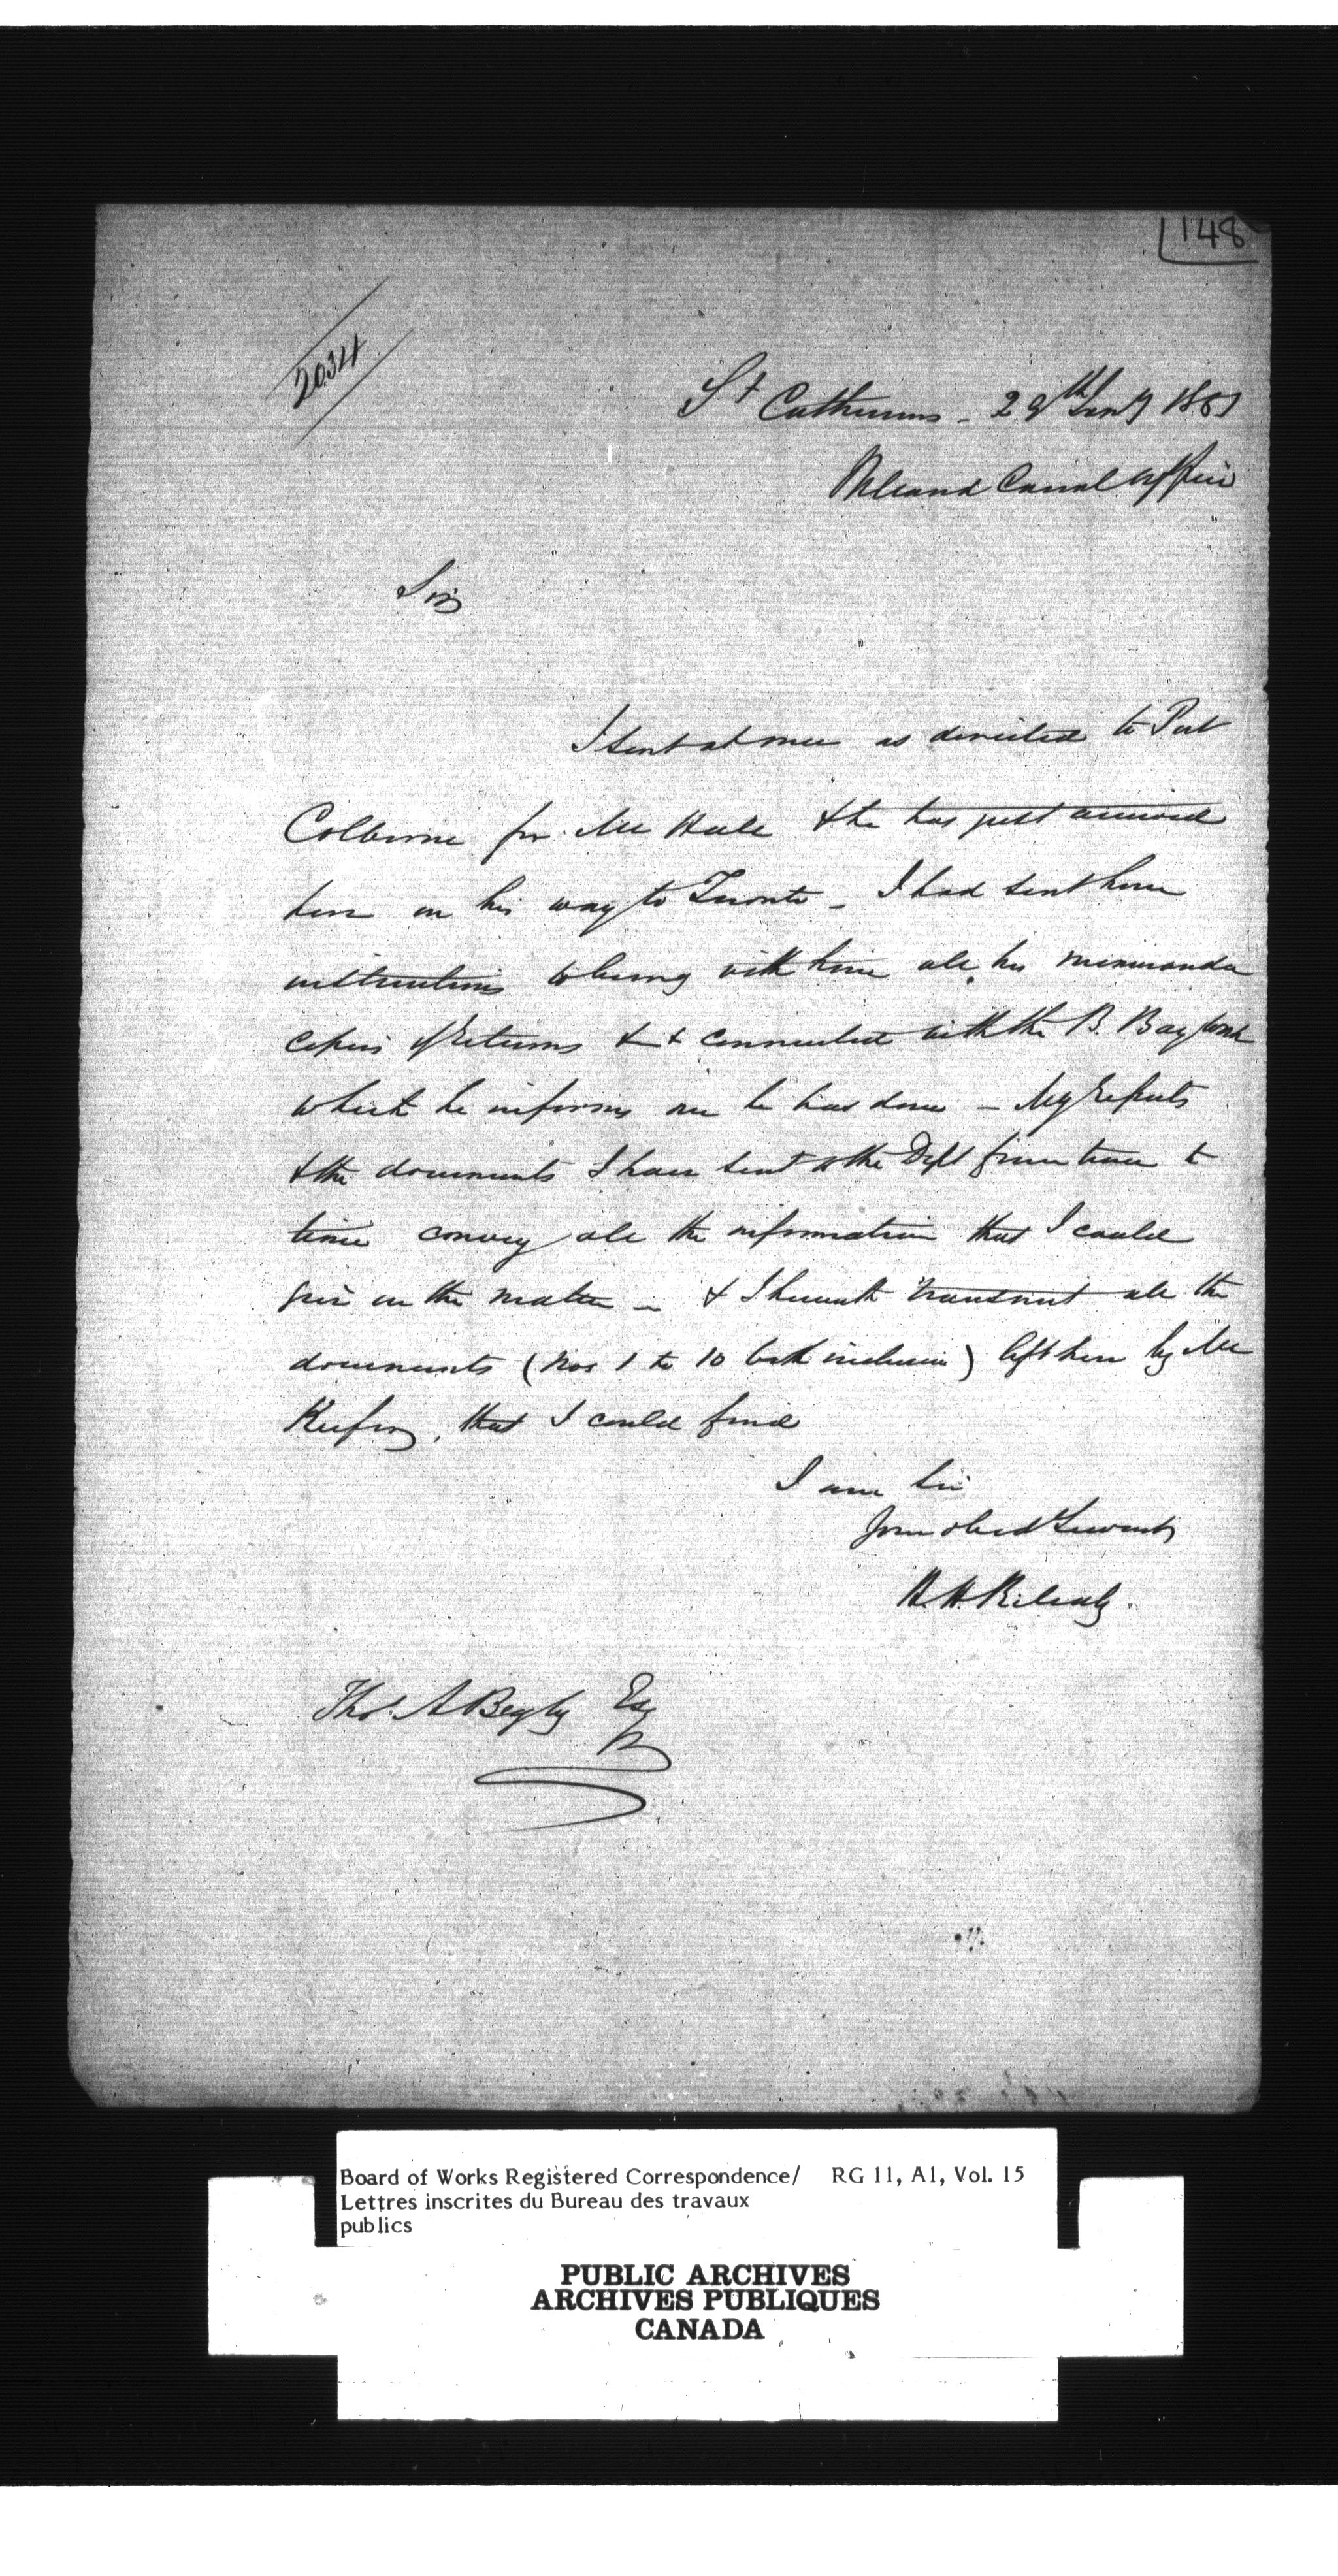 148
2034
St Catherines - 29th Jany 1851
Welland Canal Office
Sir
I sent at once as directed to Port
Colborne for Mr Hale & he has just arrived
here on his way to Toronto - I had sent him
instructions to bring with him all his memoranda
copies of returns && connected with the B. Bay work
which he informs me he has done - My Reports
& the documents I have sent to the Dept from time to
time convey all the information that I could
give on the matter - & I herewith transmit all the
documents (Nos 1 to 10 both inclusive) left here by Mr
Keefer, that I could find
I am Sir
Your obed Servant
H. H. Killaly.
Thos. A Begly Esqr
Board of Works Registered Correspondence/ RG 11, A1, Vol. 15
Lettres inscrites du Bureau des travaux
publics
PUBLIC ARCHIVES
ARCHIVES PUBLIQUES
CANADA